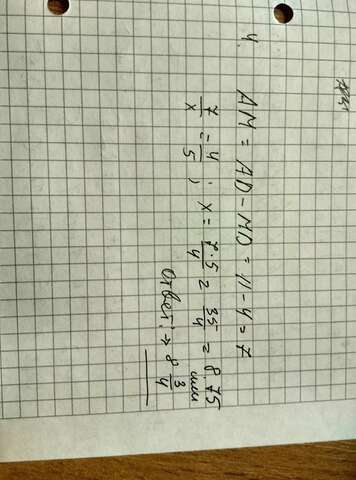 4.
AM = AD - MD = 11 - 4 = 7
7/x = 4/5 ; x = 7·5/4 = 35/4 = 8,75
или
Ответ: → 8 3/4